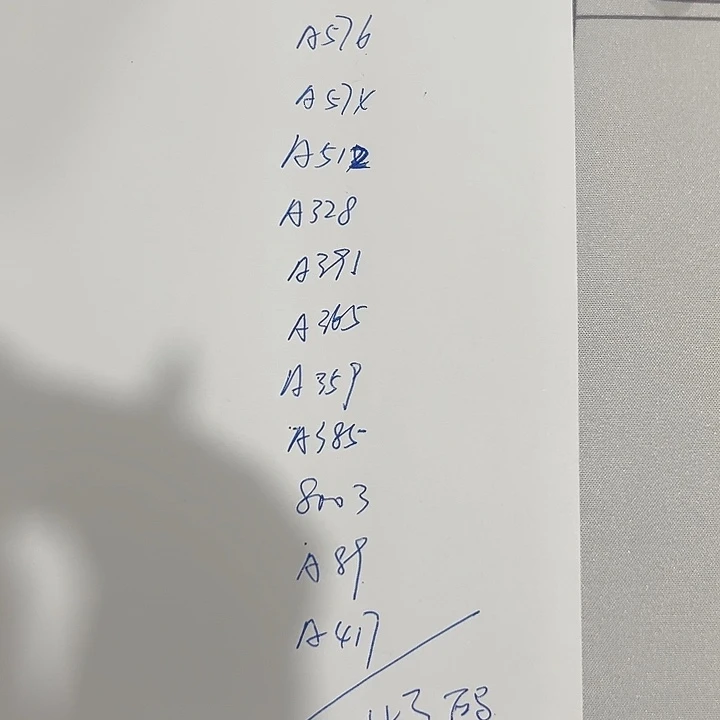 A576
A574
A512
A328
A391
A365
A359
A385
8003
A89
A417